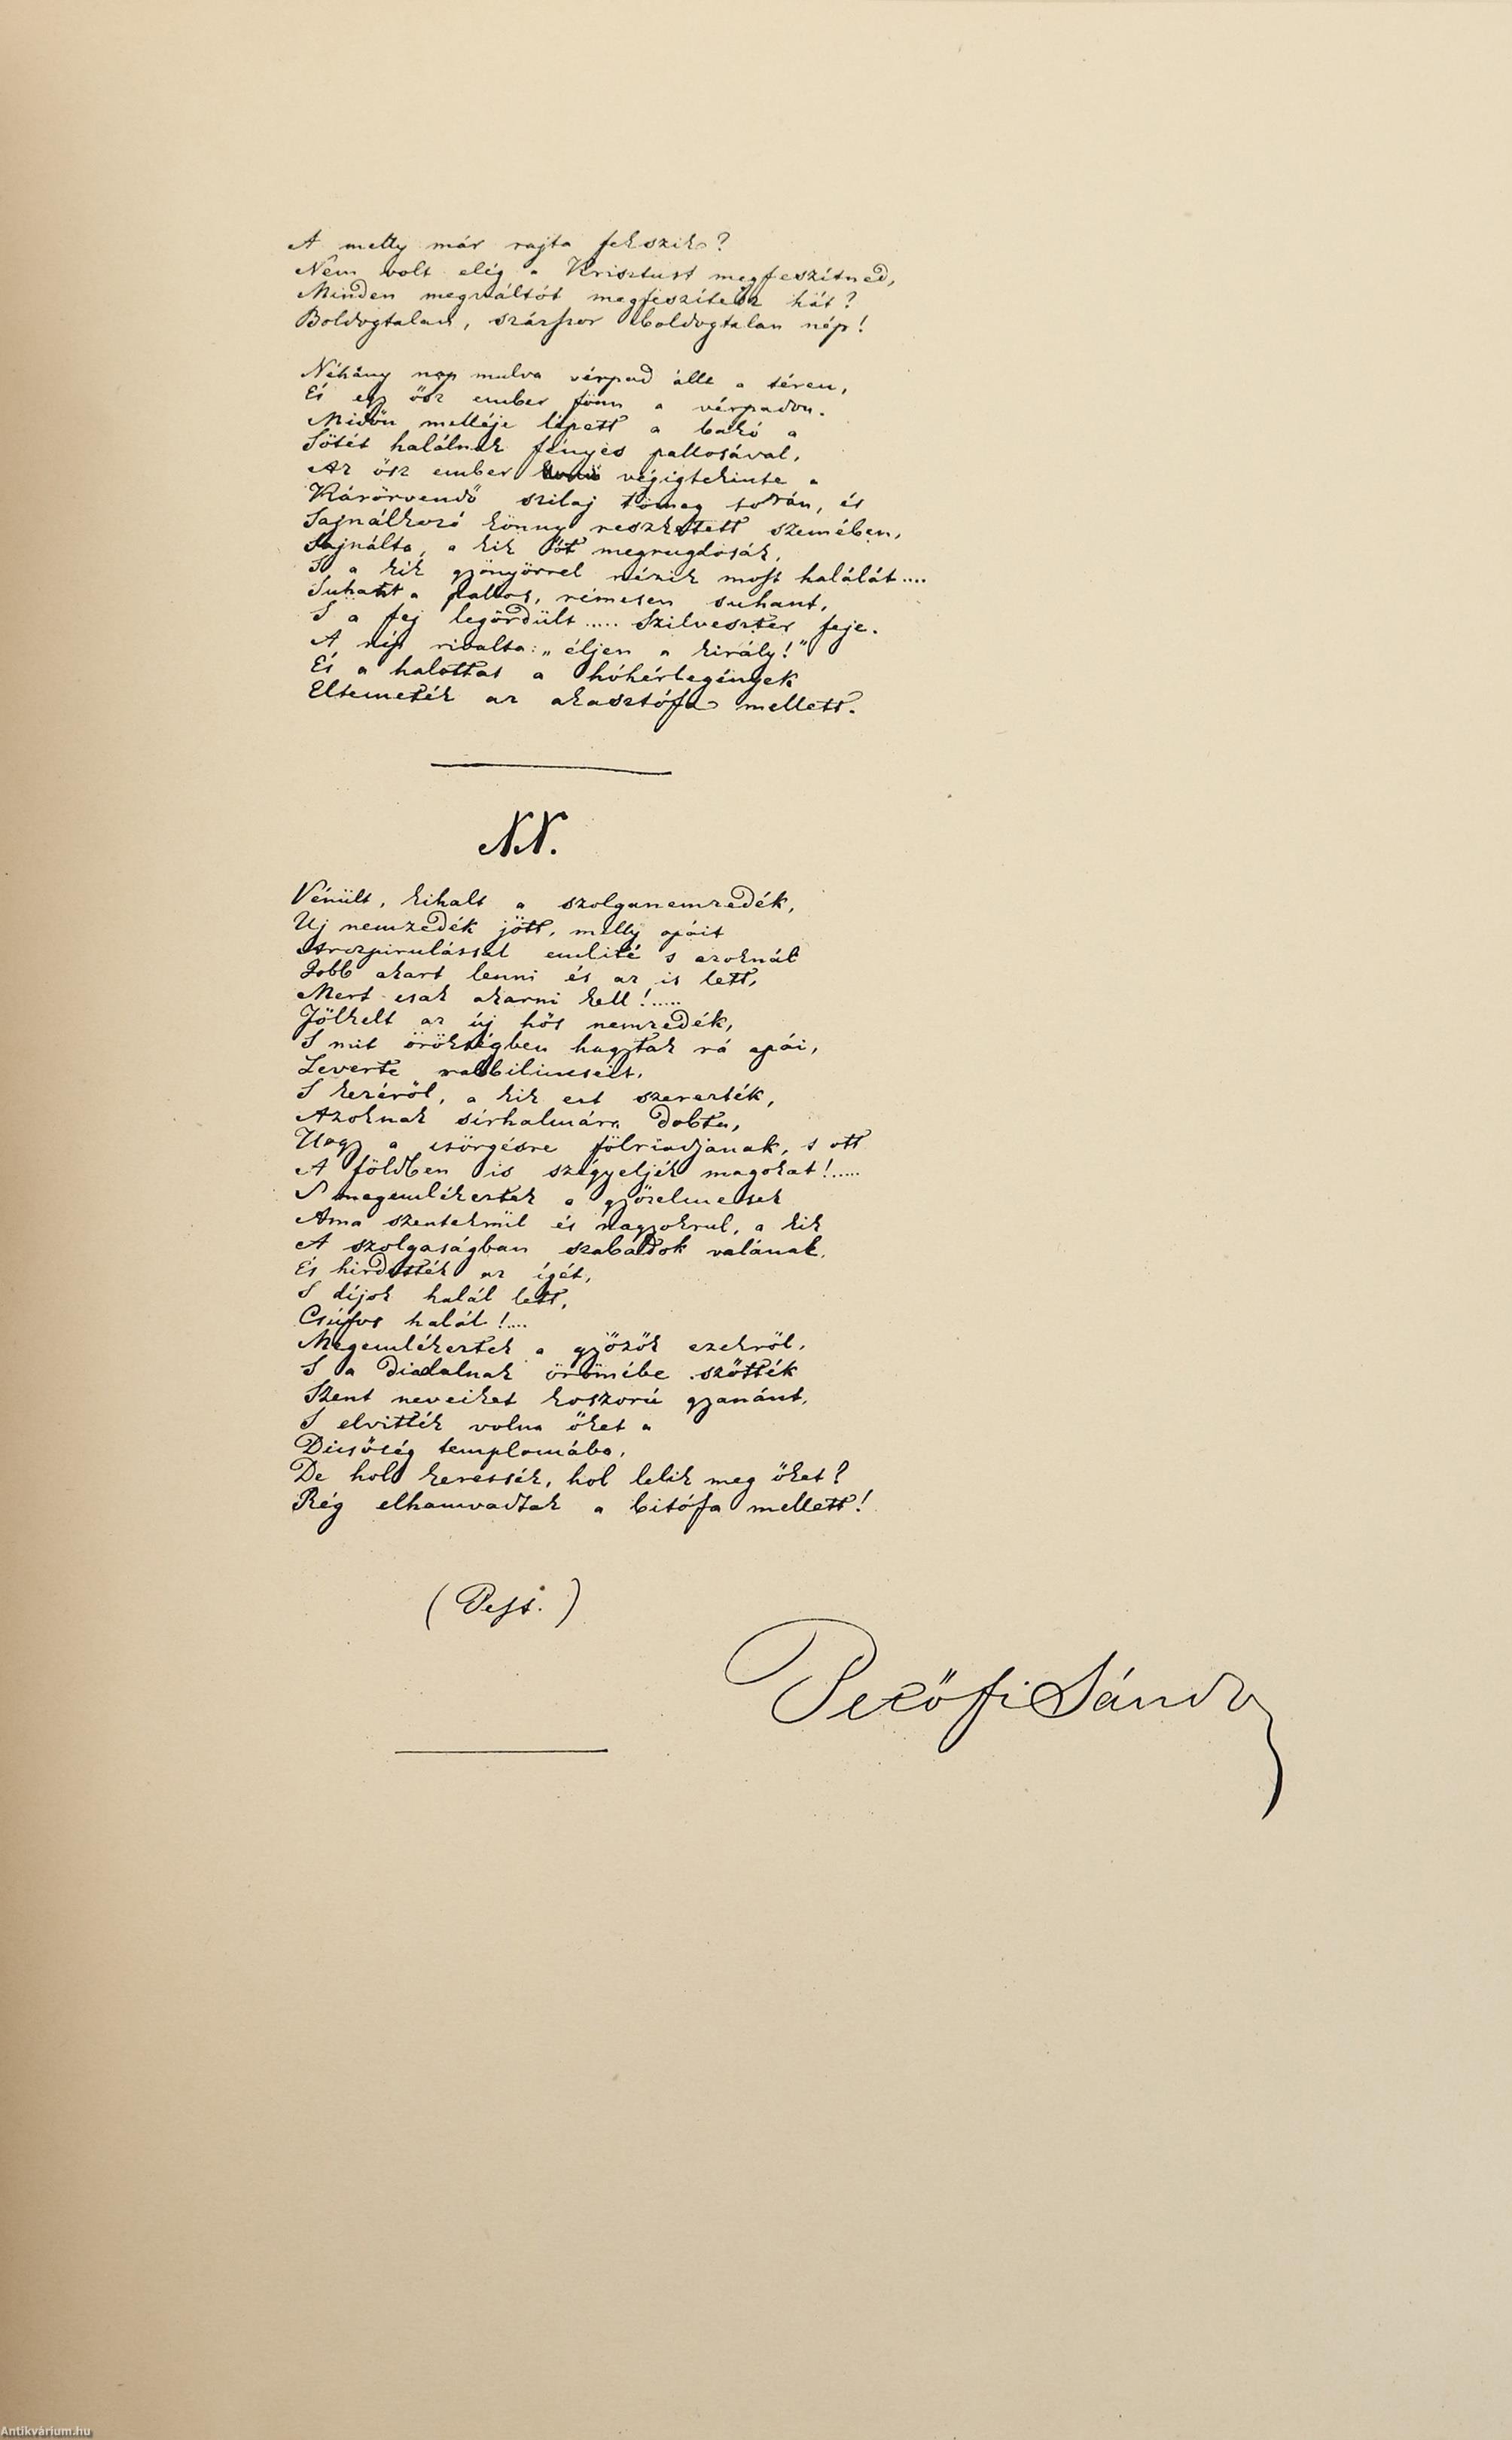 A melly már rajta fekszik?
Nem volt elég a Krisztust megfeszítned,
Minden megváltót megfeszítesz hát?
Boldogtalan, százszor boldogtalan nép!
Néhány nap mulva vérpad álla a téren,
És egy ősz ember fönn a vérpadon.
Midőn melléje lépett a bakó a
Sötét halálnak fényes pallosával,
Az ősz ember végigtekinte a
Kárörvendő szilaj tömeg során, és
Sajnálkozó könny reszketett szemében,
Sajnálta, a kik őt megrugdosák,
S a kik gyönyörrel nézik most halálát....
Suhant a pallos, rémesen suhant,
S a fej legördült..... Szilveszter feje.
A nép rivalta: „éljen a király!"
És a halottat a hóhérlegények
Eltemeték az akasztófa mellett.
XX.
Vénült, kihalt a szolganemzedék,
Uj nemzedék jött, melly apáit
Arczpirulással emlité s azoknál
Jobb akart lenni és az is lett,
Mert csak akarni kell!.....
Fölkelt az új hős nemzedék,
S mit örökségben hagytak rá apái,
Leverte rabbilincseit,
S kezéről, a kik ezt szerezték,
Azoknak sírhalmára dobta,
Hogy a csörgésre fölriadjanak, s ott
A földben is szégyeljék magokat!.....
S megemlékeztek a győzelmesek
Ama szentekrül és nagyokrul, a kik
A szolgaságban szabadok valának,
És hirdették az ígét,
S díjok halál lett,
Csúfos halál!....
Megemlékeztek a győzők ezekről,
S a diadalnak örömébe szőtték
Szent neveiket koszorú gyanánt,
S elvitték volna őket a
Dicsőség templomába,
De hol keressék, hol lelik meg őket?
Rég elhamvadtak a bitófa mellett!
(Pest.)
Petőfi Sándor
Antikvárium.hu